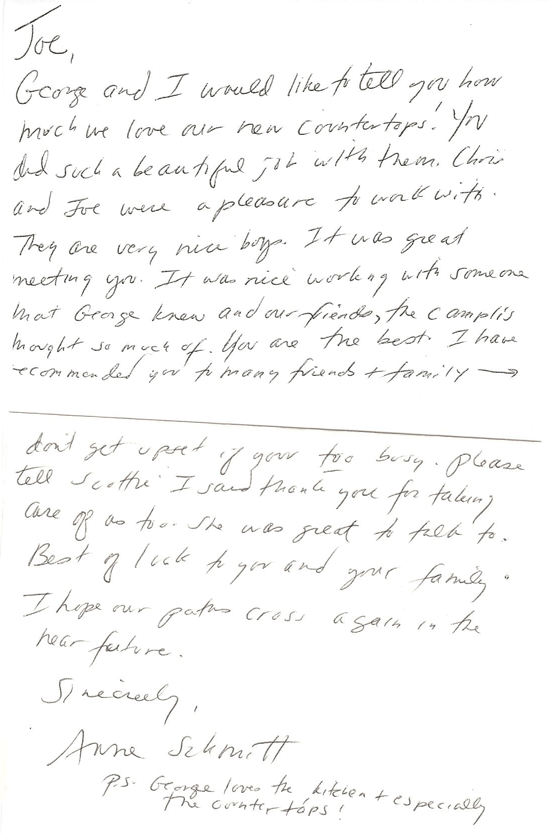 Joe,
George and I would like to tell you how
much we love our new countertops! You
did such a beautiful job with them. Chris
and Joe were a pleasure to work with.
They are very nice boys. It was great
meeting you. It was nice working with someone
that George knew and our friends, the Camplis
thought so much of. You are the best. I have
recommended you to many friends + family →
don't get upset if your too busy. Please
tell Scottie I said thank you for taking
care of us too. She was great to talk to.
Best of luck to you and your family.
I hope our paths cross again in the
near future.
Sincerely,
Anne Schmitt
P.S. George loves the kitchen + especially
the counter tops!